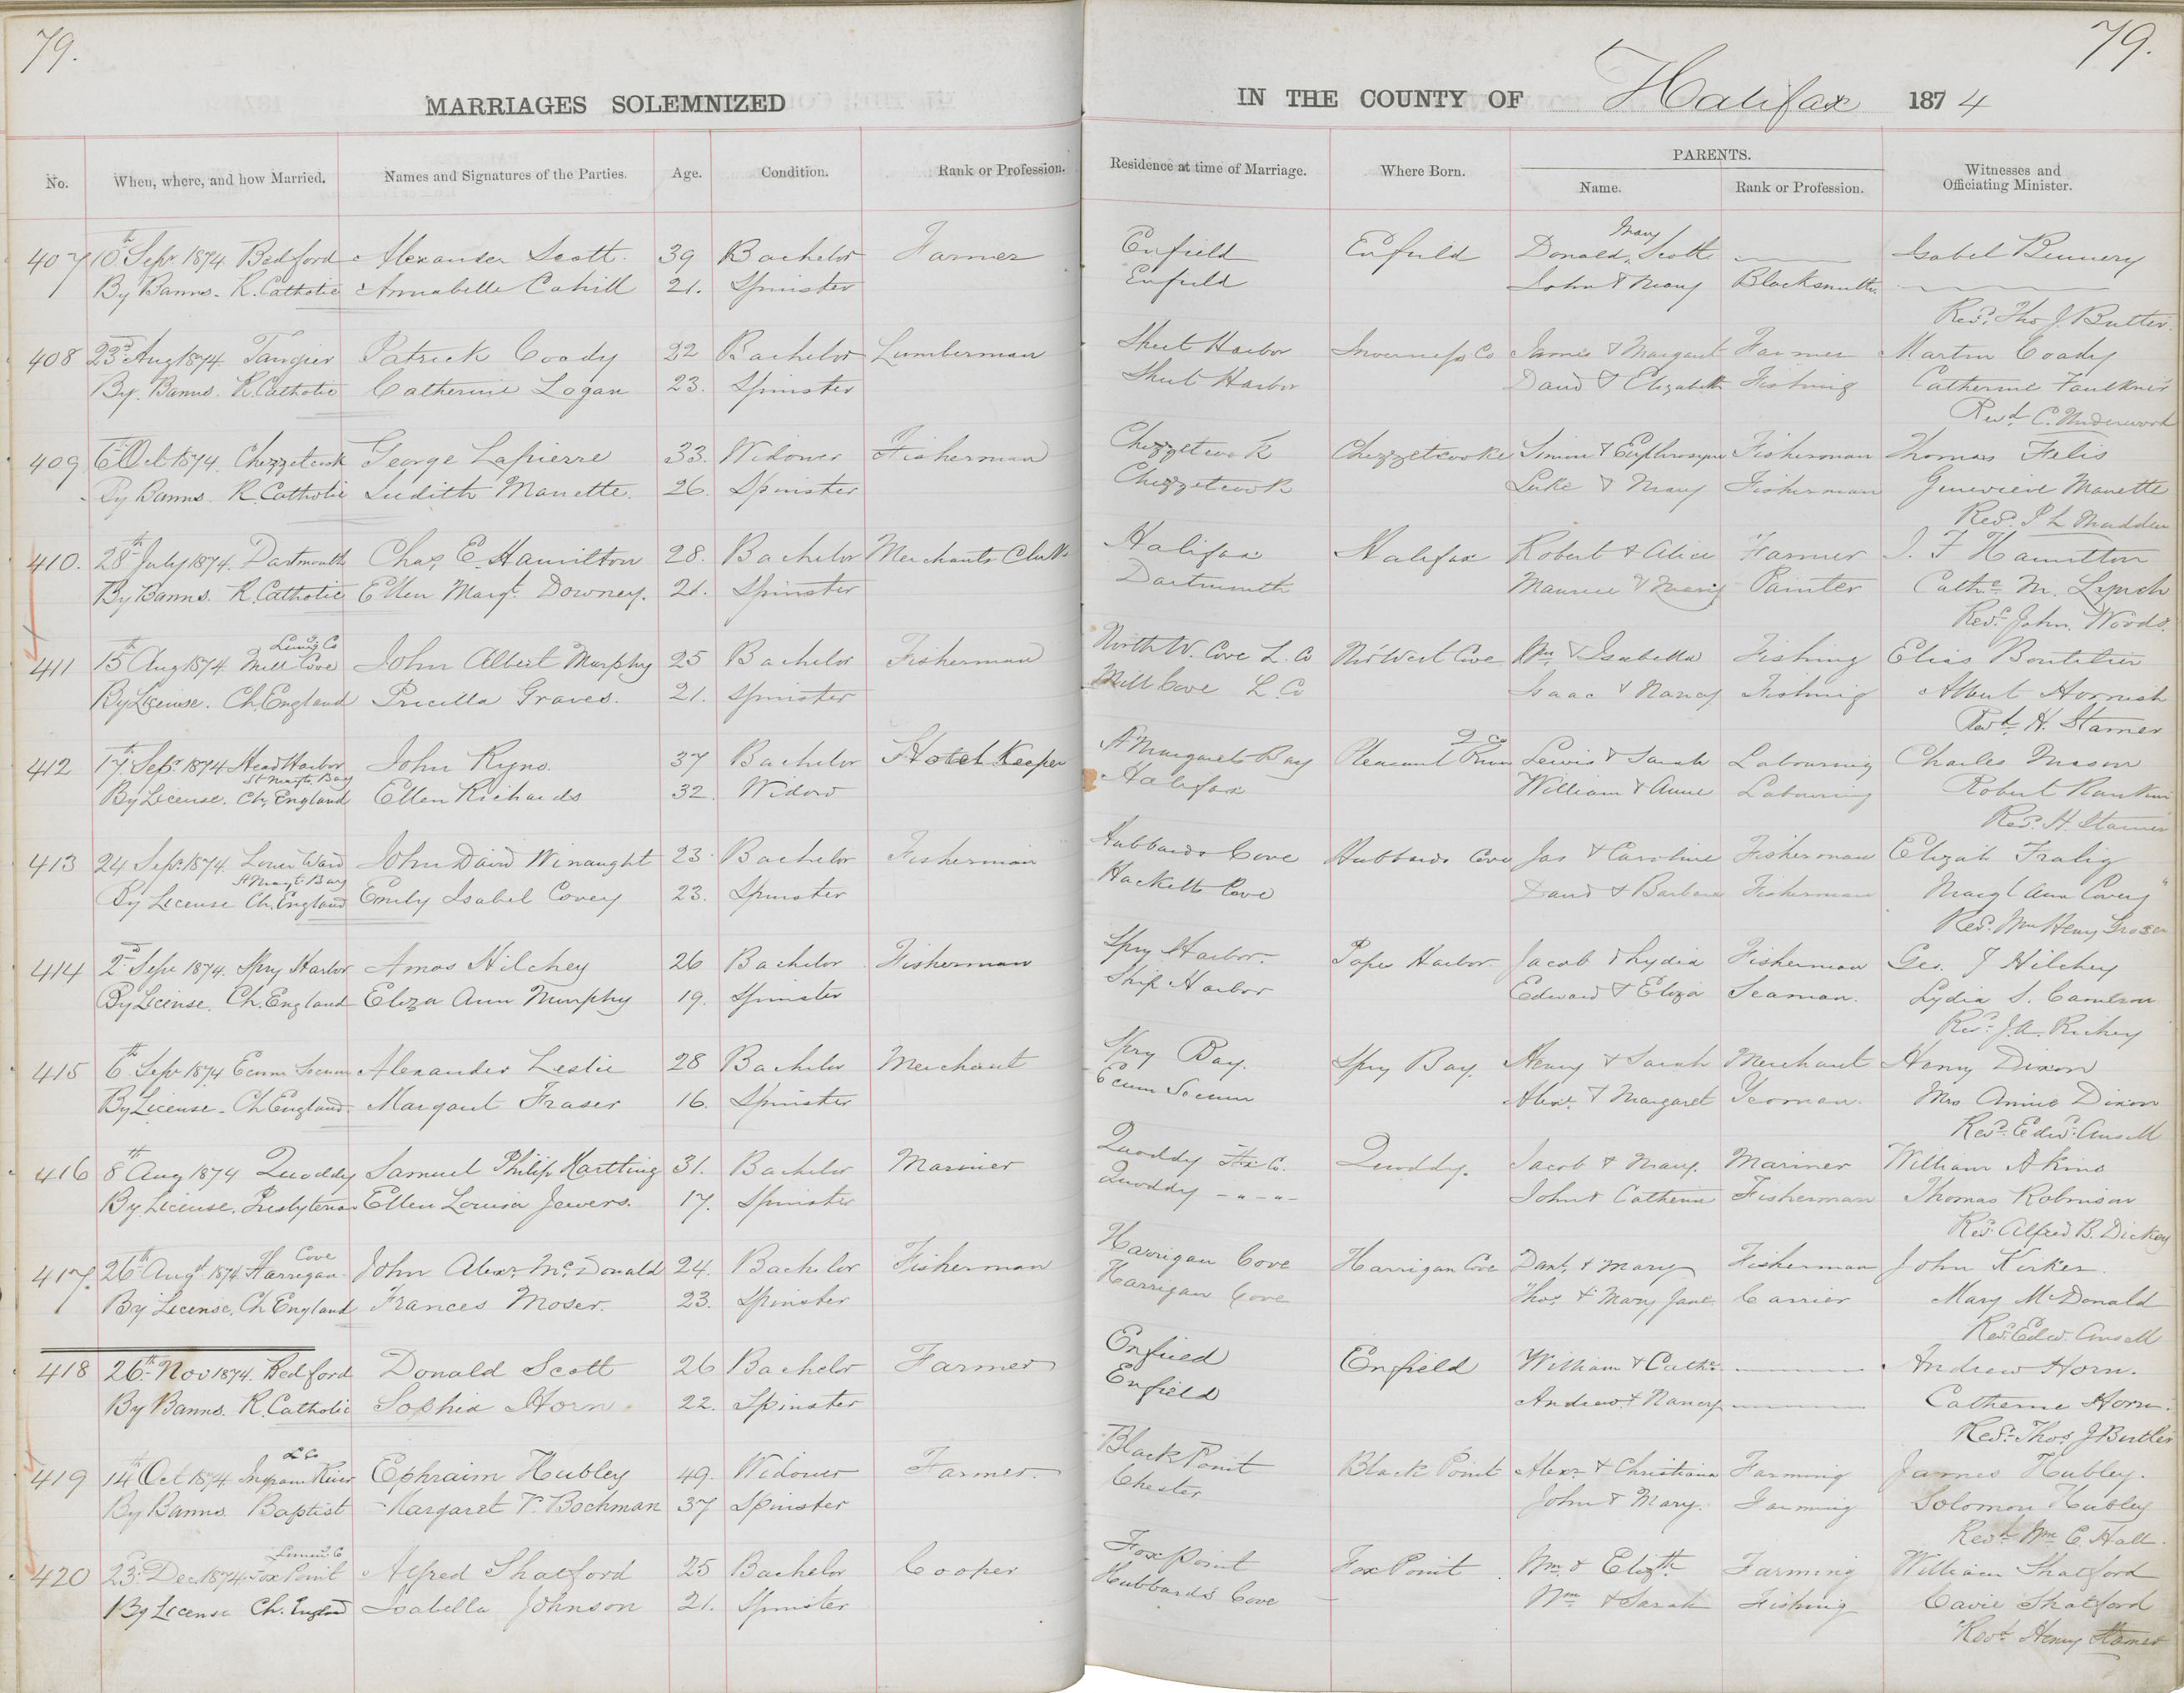 79.
79.
MARRIAGES SOLEMNIZED
IN THE COUNTY OF Halifax 1874
No. When, where, and how Married. Names and Signatures of the Parties. Age. Condition. Rank or Profession. Residence at time of Marriage. Where Born. PARENTS. Name. Rank or Profession. Witnesses and Officiating Minister.
407 10th Sepr. 1874 Bedford Alexander Scott. 39 Bachelor Farmer Enfield Enfield Donald, Mary Scott Isabel
By Banns. R. Catholic Annabelle Cahill 21. Spinster Enfield John & Mary Blacksmith
Revd. Tho J. Butler.
408 23d Aug 1874 Tangier Patrick Coady 22 Bachelor Lumberman Sheet Harbor Inverness Co James & Margaret Farmer Martin Coady
By. Banns. R. Catholic Catherine Logan 23. Spinster Sheet Harbor David & Elizabeth Fishing Catherine Faulkner
Revd C. Underwood
409 6th Oct 1874. Chezzetcook George Lapierre 33. Widower Fisherman Chezzetcook Chezzetcooke Simon & Euphrosyne Fisherman Thomas Felis
By Banns R. Catholic Judith Manette. 26. Spinster Chezzetcook Luke & Mary Fisherman Genevieve Manette
Revd. P L Madden
410. 28th July 1874. Dartmouth Chas. E. Hamilton 28. Bachelor Merchants Clerk Halifax Halifax Robert & Alice Farmer J. F Hamilton
By Banns. R. Catholic Ellen Margt. Downey. 21. Spinster Dartmouth Maurice & Mary Painter Cathe M. Lynch
Revd. John. Woods.
411 15th Aug 1874 Mill Cove Lunig Co John Albert Murphy 25 Bachelor Fisherman North W. Cove L. Co Nor West Cove Wm & Isabella Fishing Elias Boutilier
By License. Ch. England Pricella Graves. 21. Spinster Mill Cove L. Co Isaac & Nancy Fishing Albert Hornish
Revd. H. Stamer
412 17th Sepr. 1874 Head Harbor John Ryno. 37 Bachelor Hotel Keeper St Margarets Bay Pleasant River Q Co Lewis & Sarah Labouring Charles Mason
St Margts Bay
By License. Ch. England Ellen Richards 32. Widow Halifax William & Anne Labouring Robert Rankin
Revd. H. Stamer
413 24 Sepr. 1874. Lower Ward John David Winaught 23 Bachelor Fisherman Hubbards Cove Hubbards Cove Jas & Caroline Fisherman Elizah Fralig
St Margt Bay
By License Ch. England Emily Isabel Covey 23. Spinster Hacketts Cove David & Barbara Fisherman Margt Ann Covey
Revd. Wm Henry
414 2d Sepr 1874. Spry Harbor Amos Hilchey 26 Bachelor Fisherman Spry Harbor. Pope Harbor Jacob & Lydia Fisherman Geo. J Hilchey
By License. Ch. England Eliza Ann Murphy 19. Spinster Ship Harbor Edward & Eliza Seaman. Lydia S. Cameron
Revd. J. A. Richey
415 6th Sepr 1874 Ecum Secum Alexander Leslie 28 Bachelor Merchant Spry Bay. Spry Bay. Henry & Sarah Merchant Henry Dixon
By License - Ch England. Margaret Fraser 16. Spinster Ecum Secum Alexr. & Margaret Yeoman. Mrs Annie Dixon
Revd. Edwd. Ansell
416 8th Aug 1874 Quoddy Samuel Philip Hartling 31. Bachelor Mariner Quoddy Hx Co. Quoddy. Jacob & Mary. Mariner William Akins
By License. Presbyterian Ellen Louisa Jewers. 17. Spinster Quoddy - " - " - John & Catherine Fisherman Thomas Robinson
Revd Alfred B. Dickey
417. 26th Augt. 1874 Harrigan Cove John Alexr. McDonald 24. Bachelor Fisherman Harrigan Cove Harrigan Cove Danl. & Mary Fisherman John Kirker
By License. Ch England Frances Moser. 23. Spinster Harrigan Cove Thos. & Mary Jane Carrier Mary McDonald
Revd. Edw. Ansell
418 26th Nov 1874. Bedford Donald Scott 26 Bachelor Farmer Enfield Enfield William & Cathe. Andrew Horn.
By Banns. R. Catholic Sophia Horn 22. Spinster Enfield Andrew & Nancy Catherine Horn.
Revd. Thos. J Butler
419 14th Oct 1874. Ingram River L Co Ephraim Hubley 49. Widower Farmer. Black Point Black Point Alexr. & Christiana Farming James Hubley.
By Banns. Baptist Margaret P. Bochman 37 Spinster Chester John & Mary. Farming Solomon Hubley
Revd. Wm. C. Hall.
420 23d Dec. 1874. Fox Point Lunen Co Alfred Shatford 25 Bachelor Cooper Fox Point Fox Point Wm. & Elizth. Farming William Shatford
By License Ch. England Isabella Johnson 21. Spinster Hubbards Cove Wm & Sarah Fishing Cavie Shatford
Revd. Henry Stamer